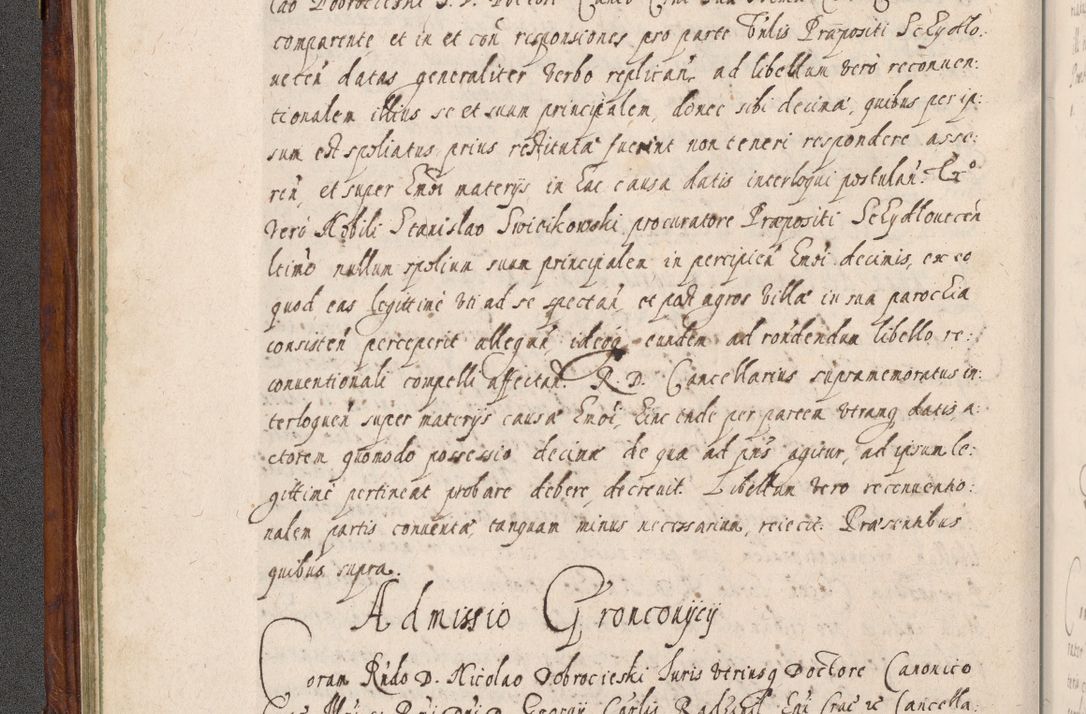 comparente et in et con responsiones pro parte Vnlis Præpositi Schydlo:
uecen datas generaliter verbo replican, ad libellum vero reconuen:
tionalem illius se et suum principalem, donec sibi decimæ, quibus per ip:
sum est spoliatus prius restituta fuerint non teneri respondere asse:
ren, et super Emoi materys in hac causa datis interloqui postulan. Ex°
Vero Nobili Stanislao Swiecikowski procuratore Præpositi Schydlouecen
ltimo nullum spolium suum principalem in percipien Emoi decimis, ex eo
quod eas legittime vti ad se spectan, et post agros villæ in sua parochia
consisten perceperit allegan ideoq eundem ad rondendum libello re:
conuentionali compelli affectan. R. D. Cancellarius supramemoratus in:
terloquen super materys causæ Emoi, hinc inde per partem vtramq datis, a:
ctorem quomodo possessio decimæ de qua ad pns agitur, ad ipsum le:
gittime pertineat probare debere, decreuit. Libellum vero reconuentio:
nalem partis conuentæ, tanquam minus necessarium, reiecit. Præsentibus
quibus supra.
Admissio Gronconycy
Coram Rndo D. Nicolao Dobrocieski Iuris Vtriusq Doctore Canonico